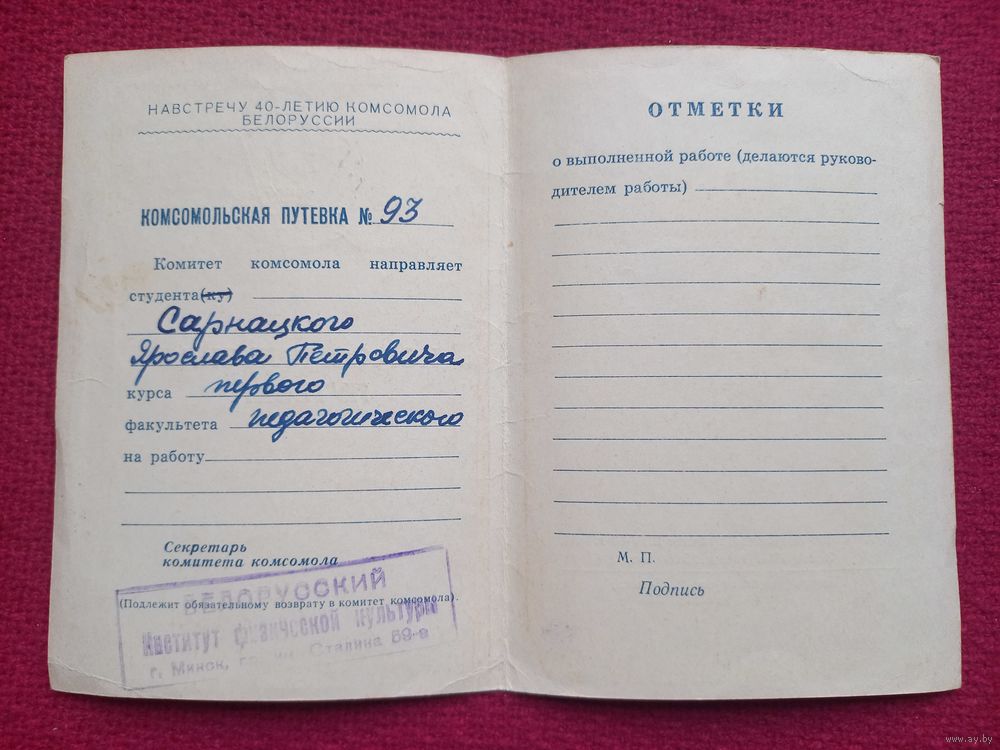 НАВСТРЕЧУ 40-ЛЕТИЮ КОМСОМОЛА
БЕЛОРУССИИ
КОМСОМОЛЬСКАЯ ПУТЕВКА № 93
Комитет комсомола направляет
студента(ку)
Сарнацкого
Ярослава Петровича
курса первого
факультета педагогического
на работу
Секретарь
комитета комсомола
(Подлежит обязательному возврату в комитет комсомола).
БЕЛОРУССКИЙ
Институт физической культуры
г. Минск, Сталина 89-а
ОТМЕТКИ
о выполненной работе (делаются руково-
дителем работы)
М. П.
Подпись
www.ay.by